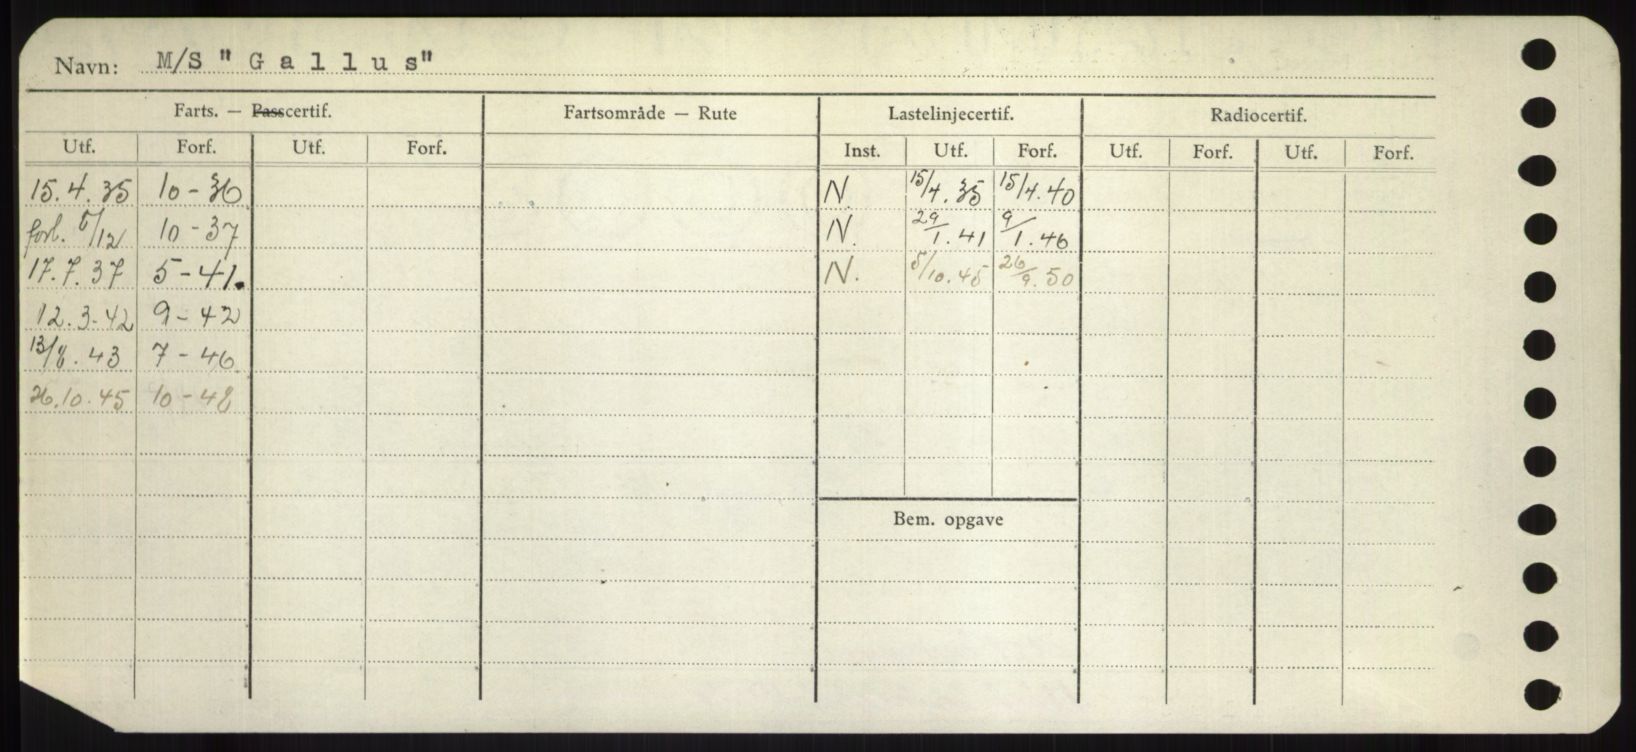 Navn: M/S "Gallus"
Farts. — Passcertif. Fartsområde — Rute Lastelinjecertif. Radiocertif.
Utf. Forf. Utf. Forf. Inst. Utf. Forf. Utf. Forf. Utf. Forf.
15.4.35 10-36 N. 15/4.35 15/4.40
forl. 5/12 10-37 N. 29/1.41 9/1.46
17.7.37 5-41. N. 5/10.45 26/9.50
12.3.42 9-42
13/8.43 7-46
26.10.45 10-48
Bem. opgave